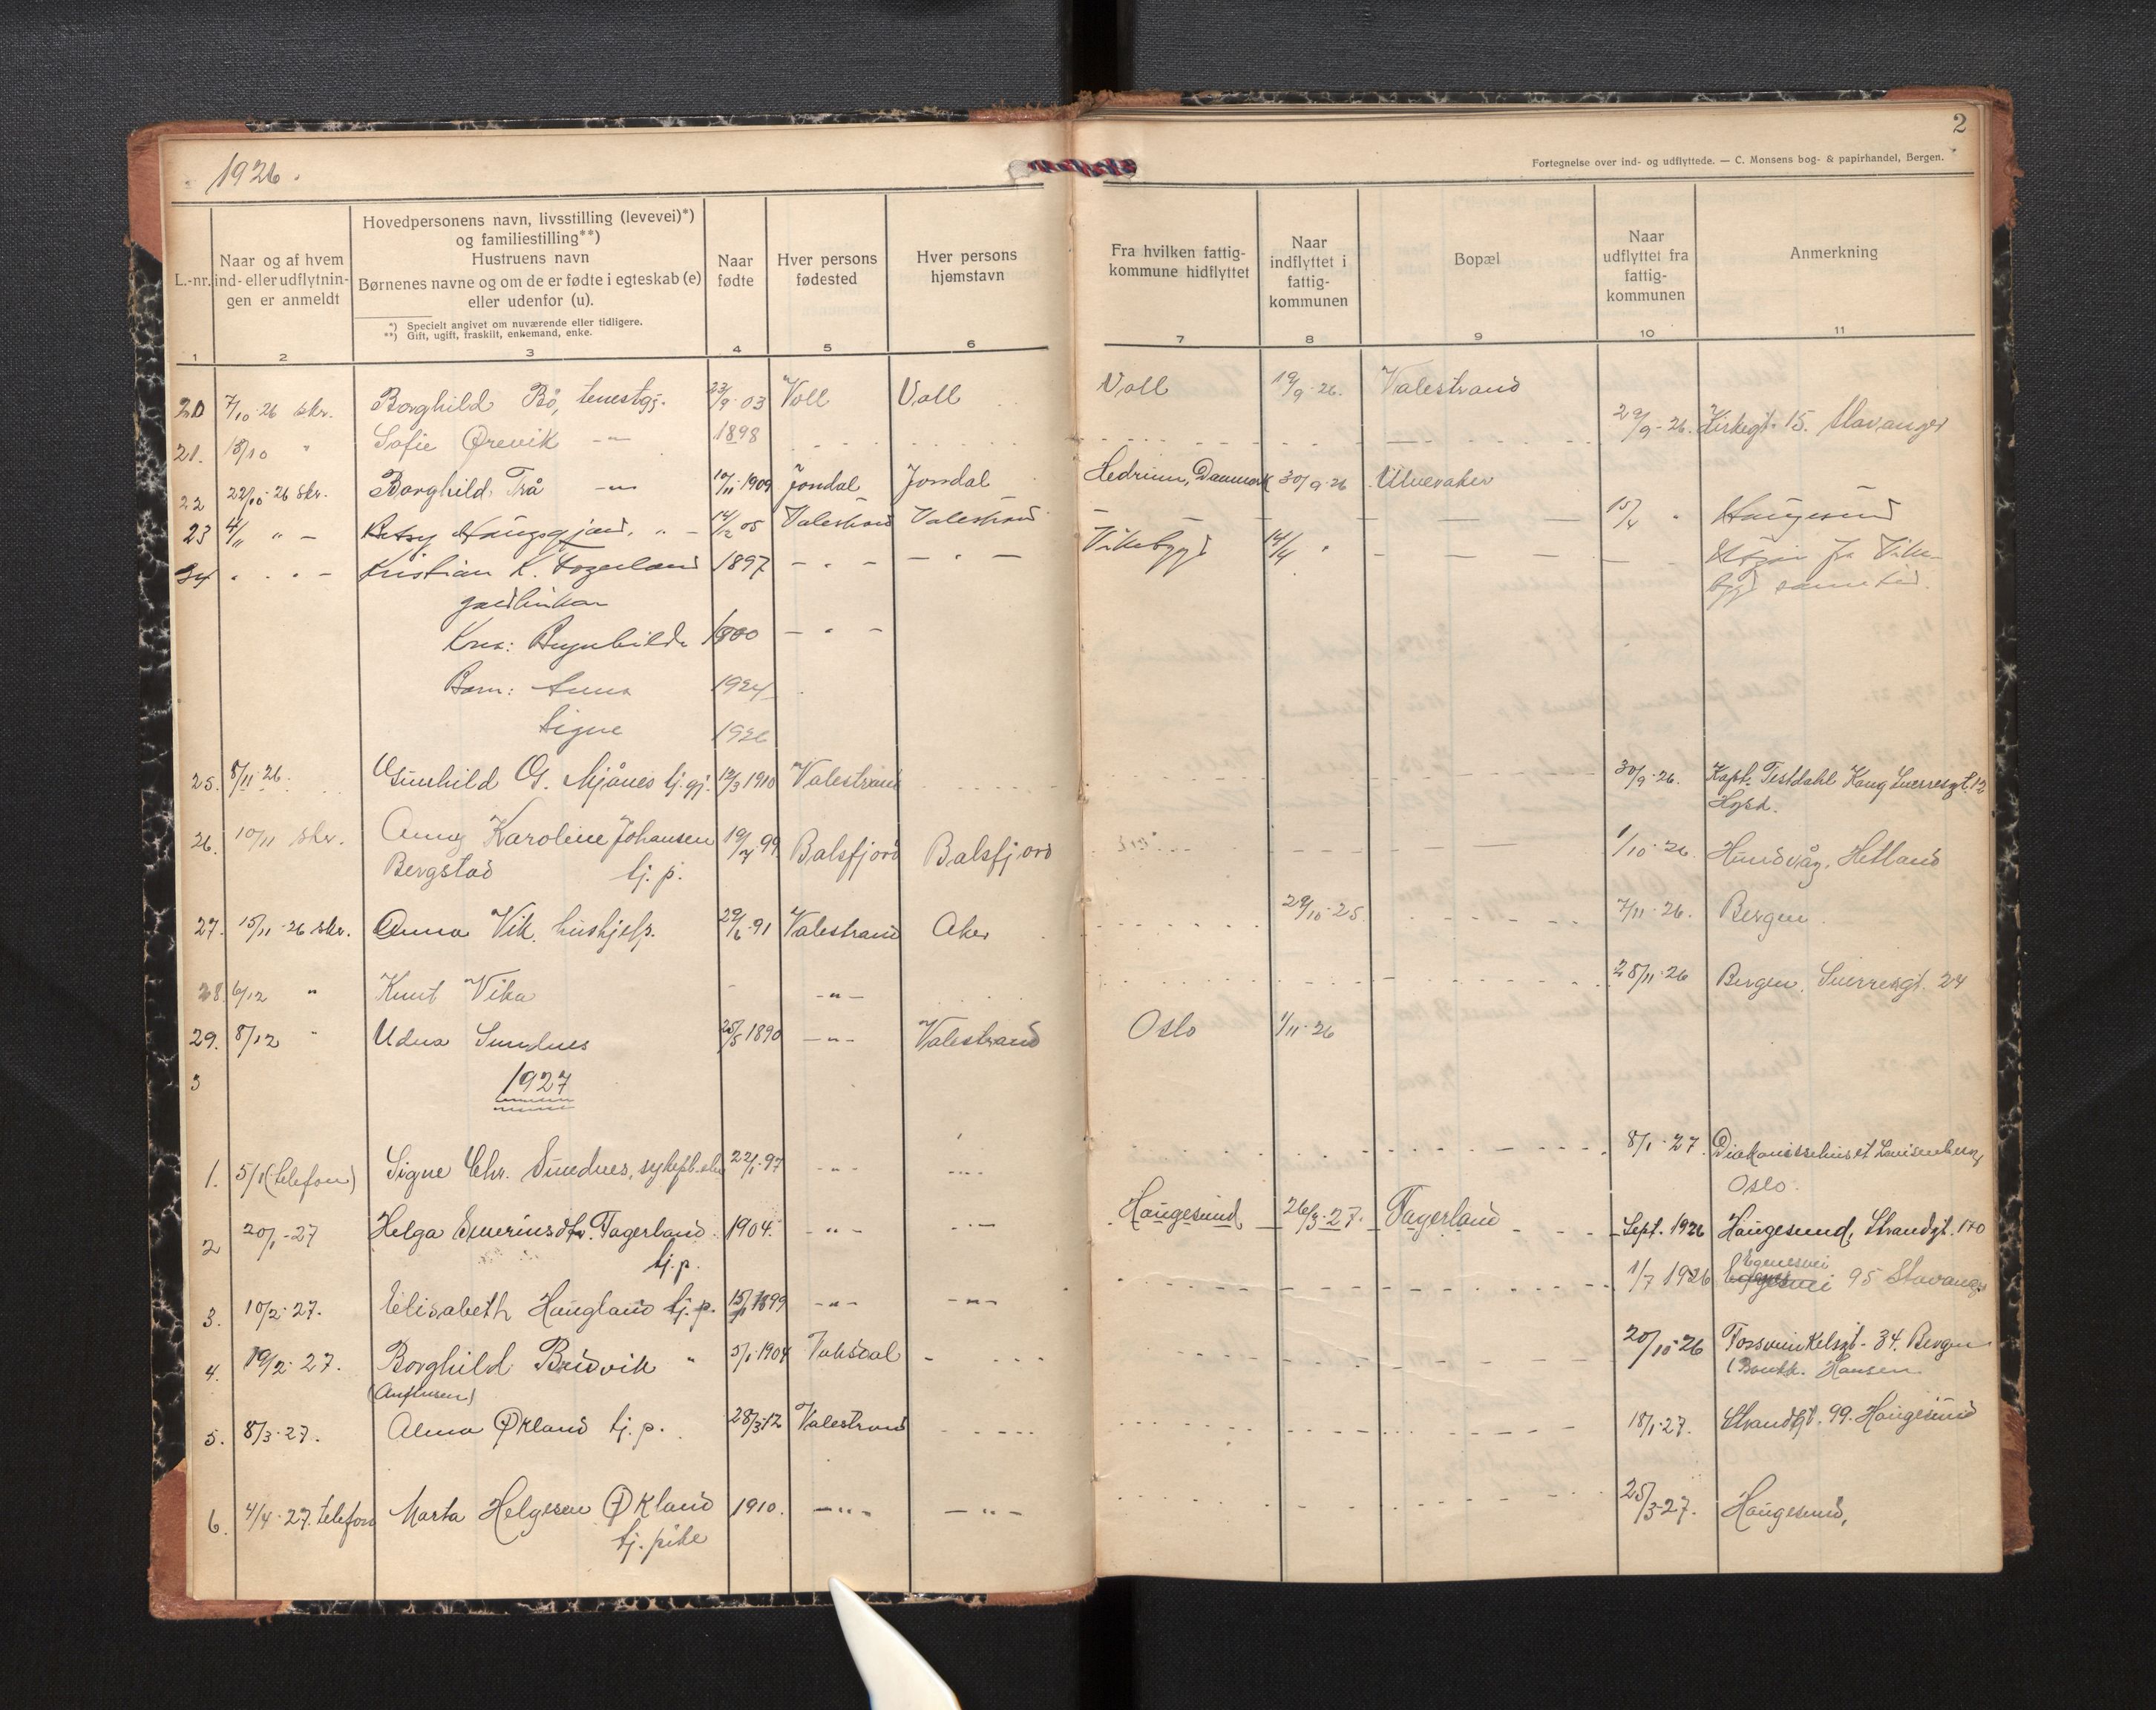 1926.
2
Fortegnelse over ind- og udflyttede. — C. Monsens bog- & papirhandel, Bergen.
L.-nr.
Naar og af hvem
ind- eller udflytnin-
gen er anmeldt
Hovedpersonens navn, livsstilling (levevei)*)
og familiestilling**)
Hustruens navn
Børnenes navne og om de er fødte i egteskab (e)
eller udenfor (u).
*) Specielt angivet om nuværende eller tidligere.
**) Gift, ugift, fraskilt, enkemand, enke.
Naar
fødte
Hver persons
fødested
Hver persons
hjemstavn
Fra hvilken fattig-
kommune hidflyttet
Naar
indflyttet i
fattig-
kommunen
Bopæl
Naar
udflyttet fra
fattig-
kommunen
Anmerkning
1 2 3 4 5 6 7 8 9 10 11
20 7/10-26 skr. Borghild Bö, tenestgj. 23/9-03 Voll Voll Voll 19/9-26. Valestrand
21. 18/10 " Sofie Ørevik —"— 1898 29/9-26. Kirkegt. 15. Stavanger
22 22/10-26 skr. Borghild Trå —"— 10/11-1909 Jondal Jondal Hedrum, Danmark 30/9-26 Ulvevaker
23 4/11 " — Betsy Haugsgjerd, " — 14/12 05 Valestrand Valestrand — — — — 15/4 " Haugesund
24 " " " — Kristian K. Fagerland 1897 — " — — " — Vikebygd 14/4 " — — — — — fra Vike-
gardbrukar bygd same tid.
Kna: Brynhilda 1900 — " —
Barn: Anna 1924
Signe 1926
25. 8/11-26. Gunhild G. Mjånes tj.gj. 12/3 1910 Valestrand 30/9-26. Kapt. Testdahl Kong Sverresgt. 12
Hgsd.
26. 10/11 skr. Anny Karoline Johansen 19/7-99 Balsfjord Balsfjord 1/10-26. Hundvåg, Hetland
Bergstad tj. p.
27. 15/11-26 skr. Anna Vik, hushjelp. 29/6-91 Valestrand Aker 29/10-25. 7/11-26. Bergen.
28. 6/12 " Knut Vika — —"— 28/11-26 Bergen. Sverresgt. 24
29. 8/12 " Udna Sundnes 25/5 1890 —"— Valestrand Oslo 1/11-26
3 1927
1. 5/1 (telefon) Signe Chr. Sundnes, sykepl.elev 22/1-97 —"— —"— 8/1-27. Diakonissehuset Lovisenberg,
Oslo.
2 20/1-27 Helga Severinsdtr. Fagerland 1904. —"— —"— Haugesund 26/3-27. Fagerland Sept. 1926 Haugesund, Strandgt. 170
tj.p.
Egnesvei
3. 10/2-27. Elisabeth Haugland tj. p. 15/1 1899 —"— —"— 1/7 1926 95 Stavanger
4. 19/2-27. Borghild Bredvik " 5/1-1904 Vaksdal 20/10-26 Torsvinkelsgt. 34. Bergen
(Anfinsen) Hansen
5. 8/3-27. Alma Økland tj. p. 28/3-12 Valestrand 18/1-27. Strandgt. 99. Haugesund
6. 4/4-27. telefon Marta Helgesen Økland 1910. —"— —"— 25/3-27. Haugesund,
tj. pike